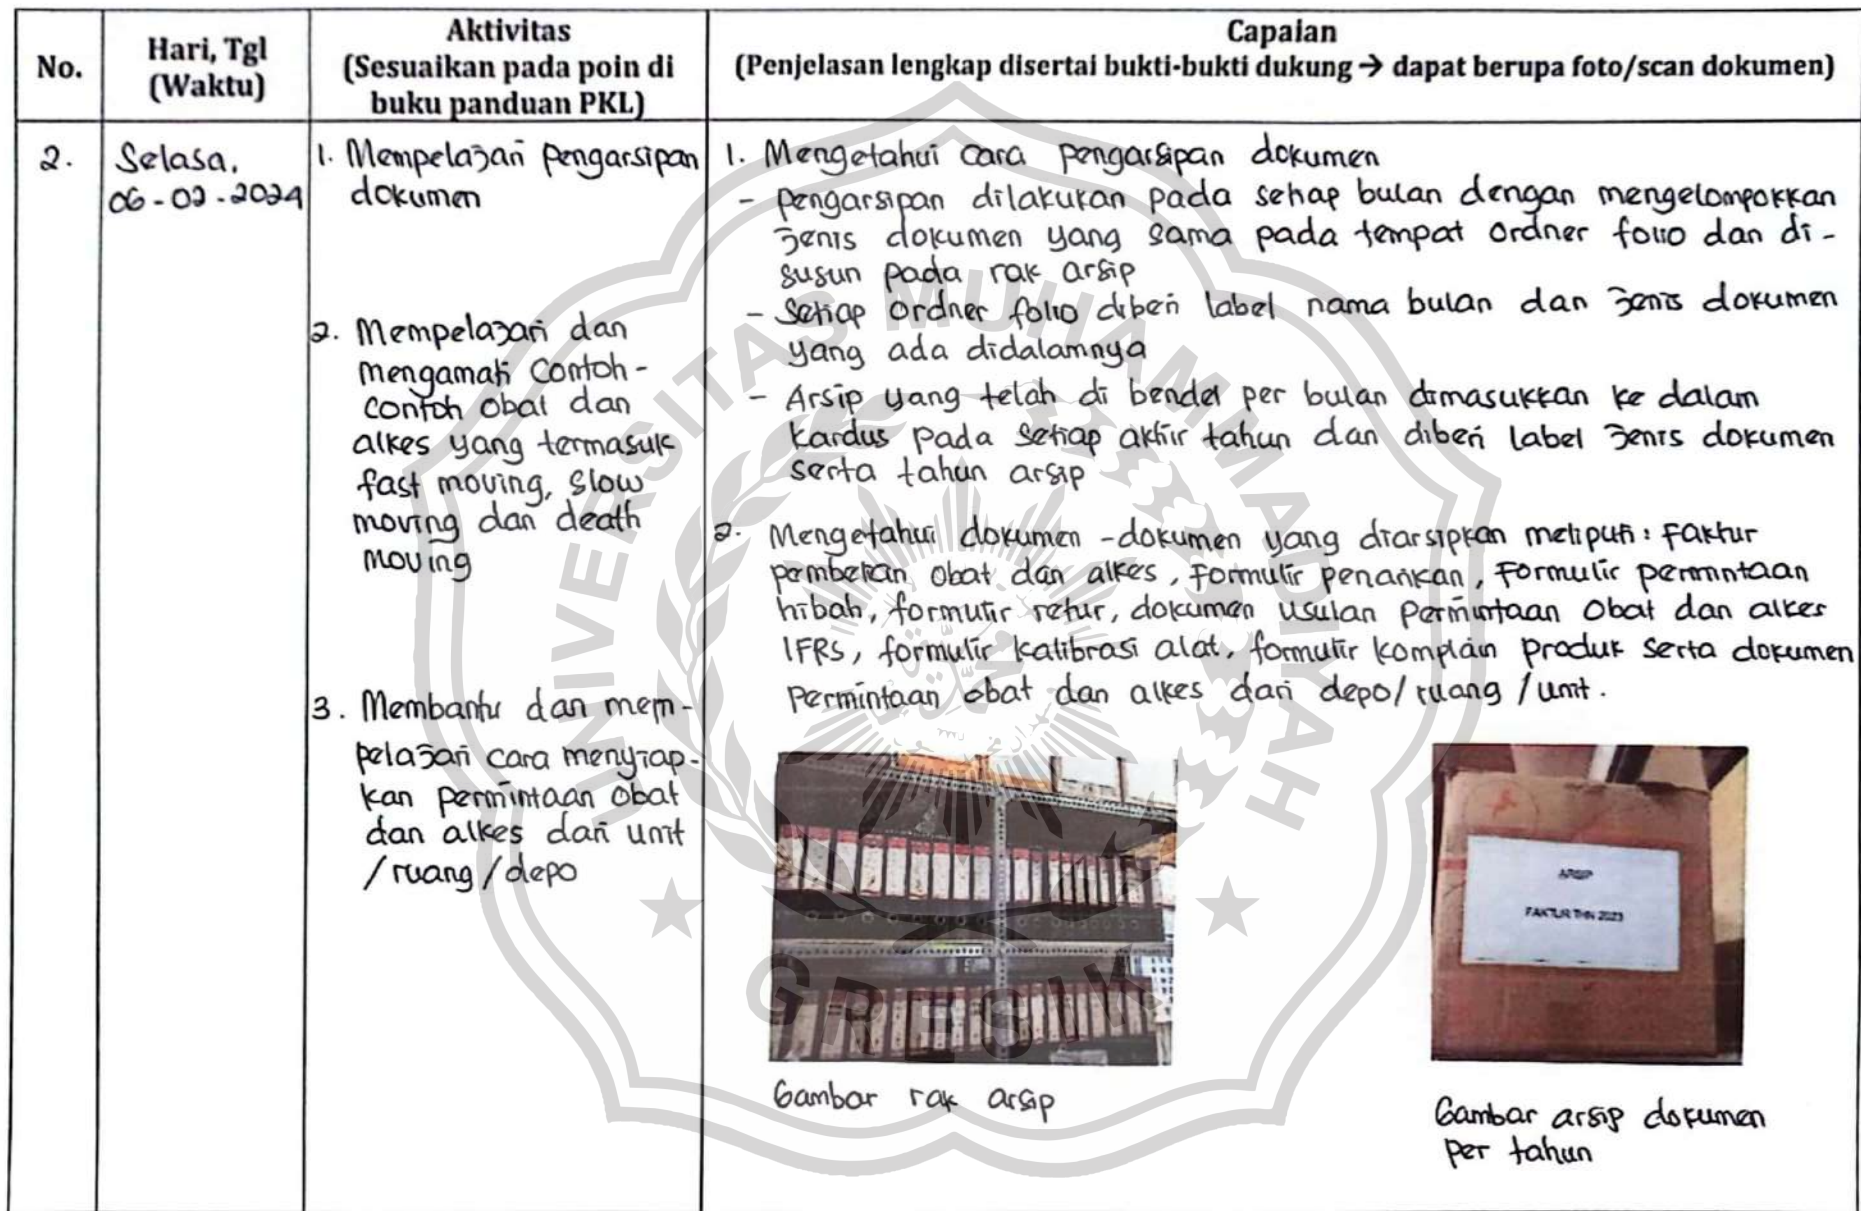 No.
Hari, Tgl
(Waktu)
Aktivitas
(Sesuaikan pada poin di
buku panduan PKL)
Capaian
(Penjelasan lengkap disertai bukti-bukti dukung → dapat berupa foto/scan dokumen)
2.
Selasa,
06-02-2024
1. Mempelajari pengarsipan
dokumen
2. Mempelajari dan
mengamati contoh-
contoh obat dan
alkes yang termasuk
fast moving, slow
moving dan death
moving
3. Membantu dan mem-
pelajari cara menyiap-
kan permintaan obat
dan alkes dari unit
/ruang/depo
1. Mengetahui cara pengarsipan dokumen
- pengarsipan dilakukan pada setiap bulan dengan mengelompokkan
jenis dokumen yang sama pada tempat ordner folio dan di-
susun pada rak arsip
- Setiap ordner folio diberi label nama bulan dan jenis dokumen
yang ada didalamnya
- Arsip yang telah di bendel per bulan dimasukkan ke dalam
kardus pada setiap akhir tahun dan diberi label jenis dokumen
serta tahun arsip
2. Mengetahui dokumen-dokumen yang diarsipkan meliputi: faktur
pembelian obat dan alkes, formulir penarikan, formulir permintaan
hibah, formulir retur, dokumen usulan permintaan obat dan alkes
IFRS, formulir kalibrasi alat, formulir komplain produk serta dokumen
permintaan obat dan alkes dari depo/ruang/unit.
ARSIP
FAKTUR THN 2023
Gambar rak arsip
Gambar arsip dokumen
per tahun
UNIVERSITAS MUHAMMADIYAH
GRESIK